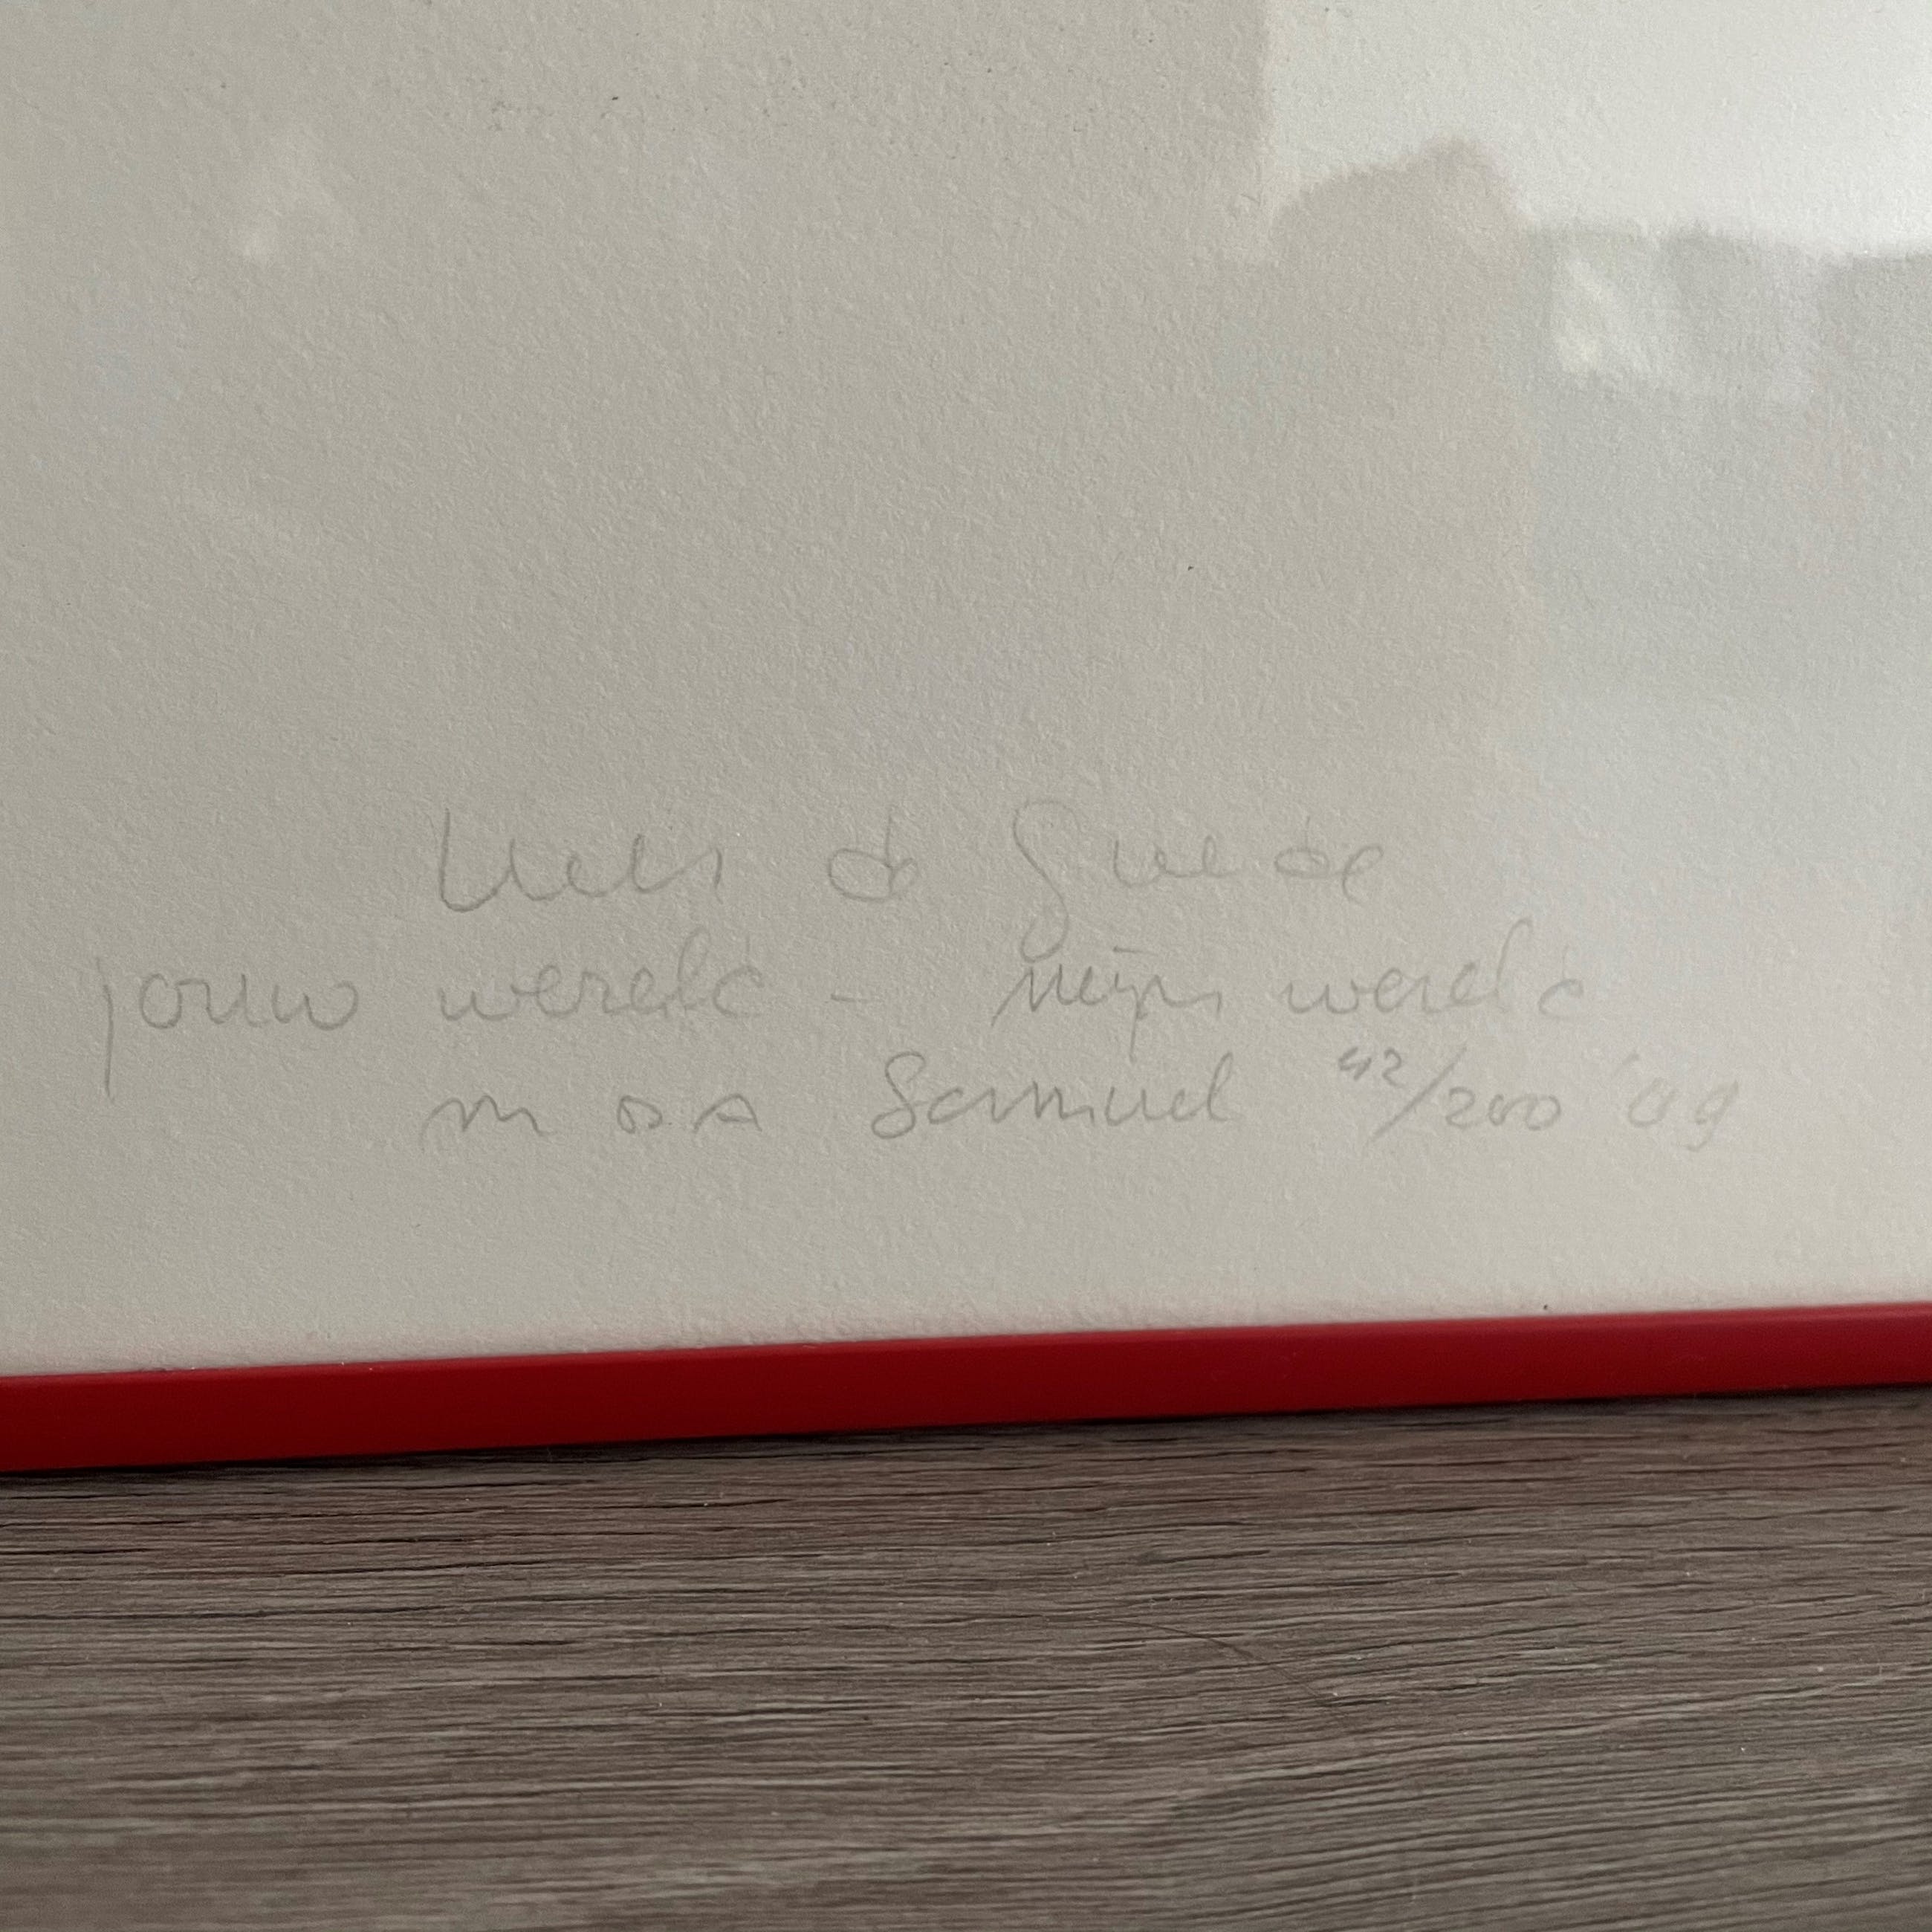 Kees de Goede
jouw wereld - mijn wereld
Samuel 42/200 '09